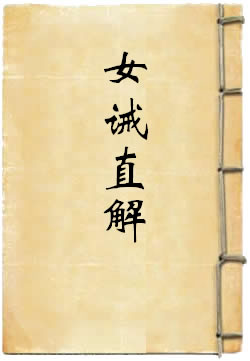 女诫直解